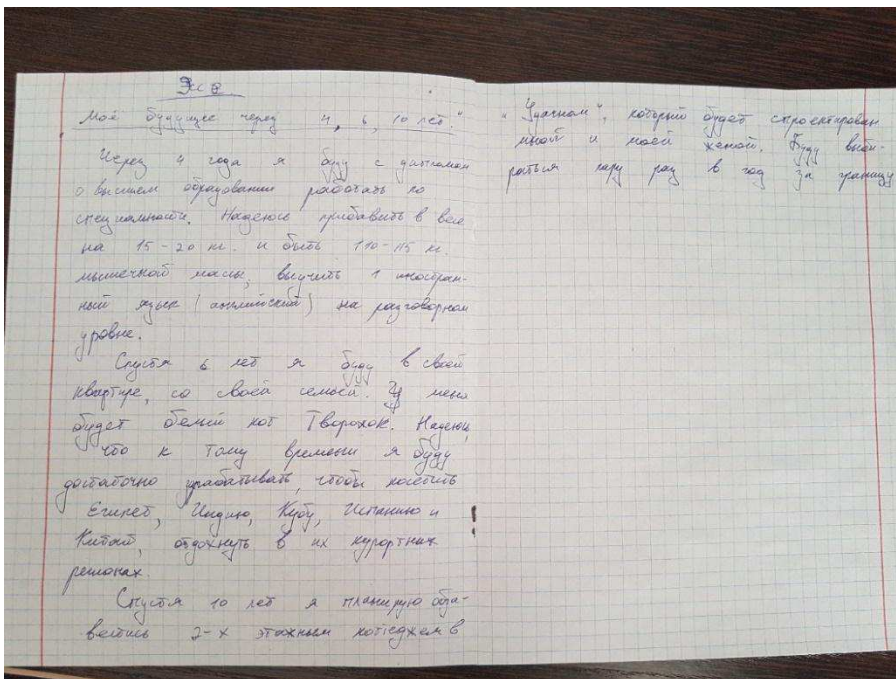 Эссе
"Моё будущее через 4, 6, 10 лет."
Через 4 года я буду с дипломом
о высшем образовании работать по
специальности. Надеюсь прибавить в весе
на 15-20 кг. и быть 110-115 кг.
мышечной массы, выучить 1 иностран-
ный язык (английский) на разговорном
уровне.
Спустя 6 лет я буду в своей
квартире, со своей семьёй. У меня
будет белый кот Творожок. Надеюсь,
что к тому времени я буду
достаточно зарабатывать, чтобы посетить
Египет, Индию, Кубу, Испанию и
Китай, отдохнуть в их курортных
регионах.
Спустя 10 лет я планирую обза-
вестись 2-х этажным котеджем в
"Удачном", который будет спроектирован
мной и моей женой. Буду выби-
раться пару раз в год за границу